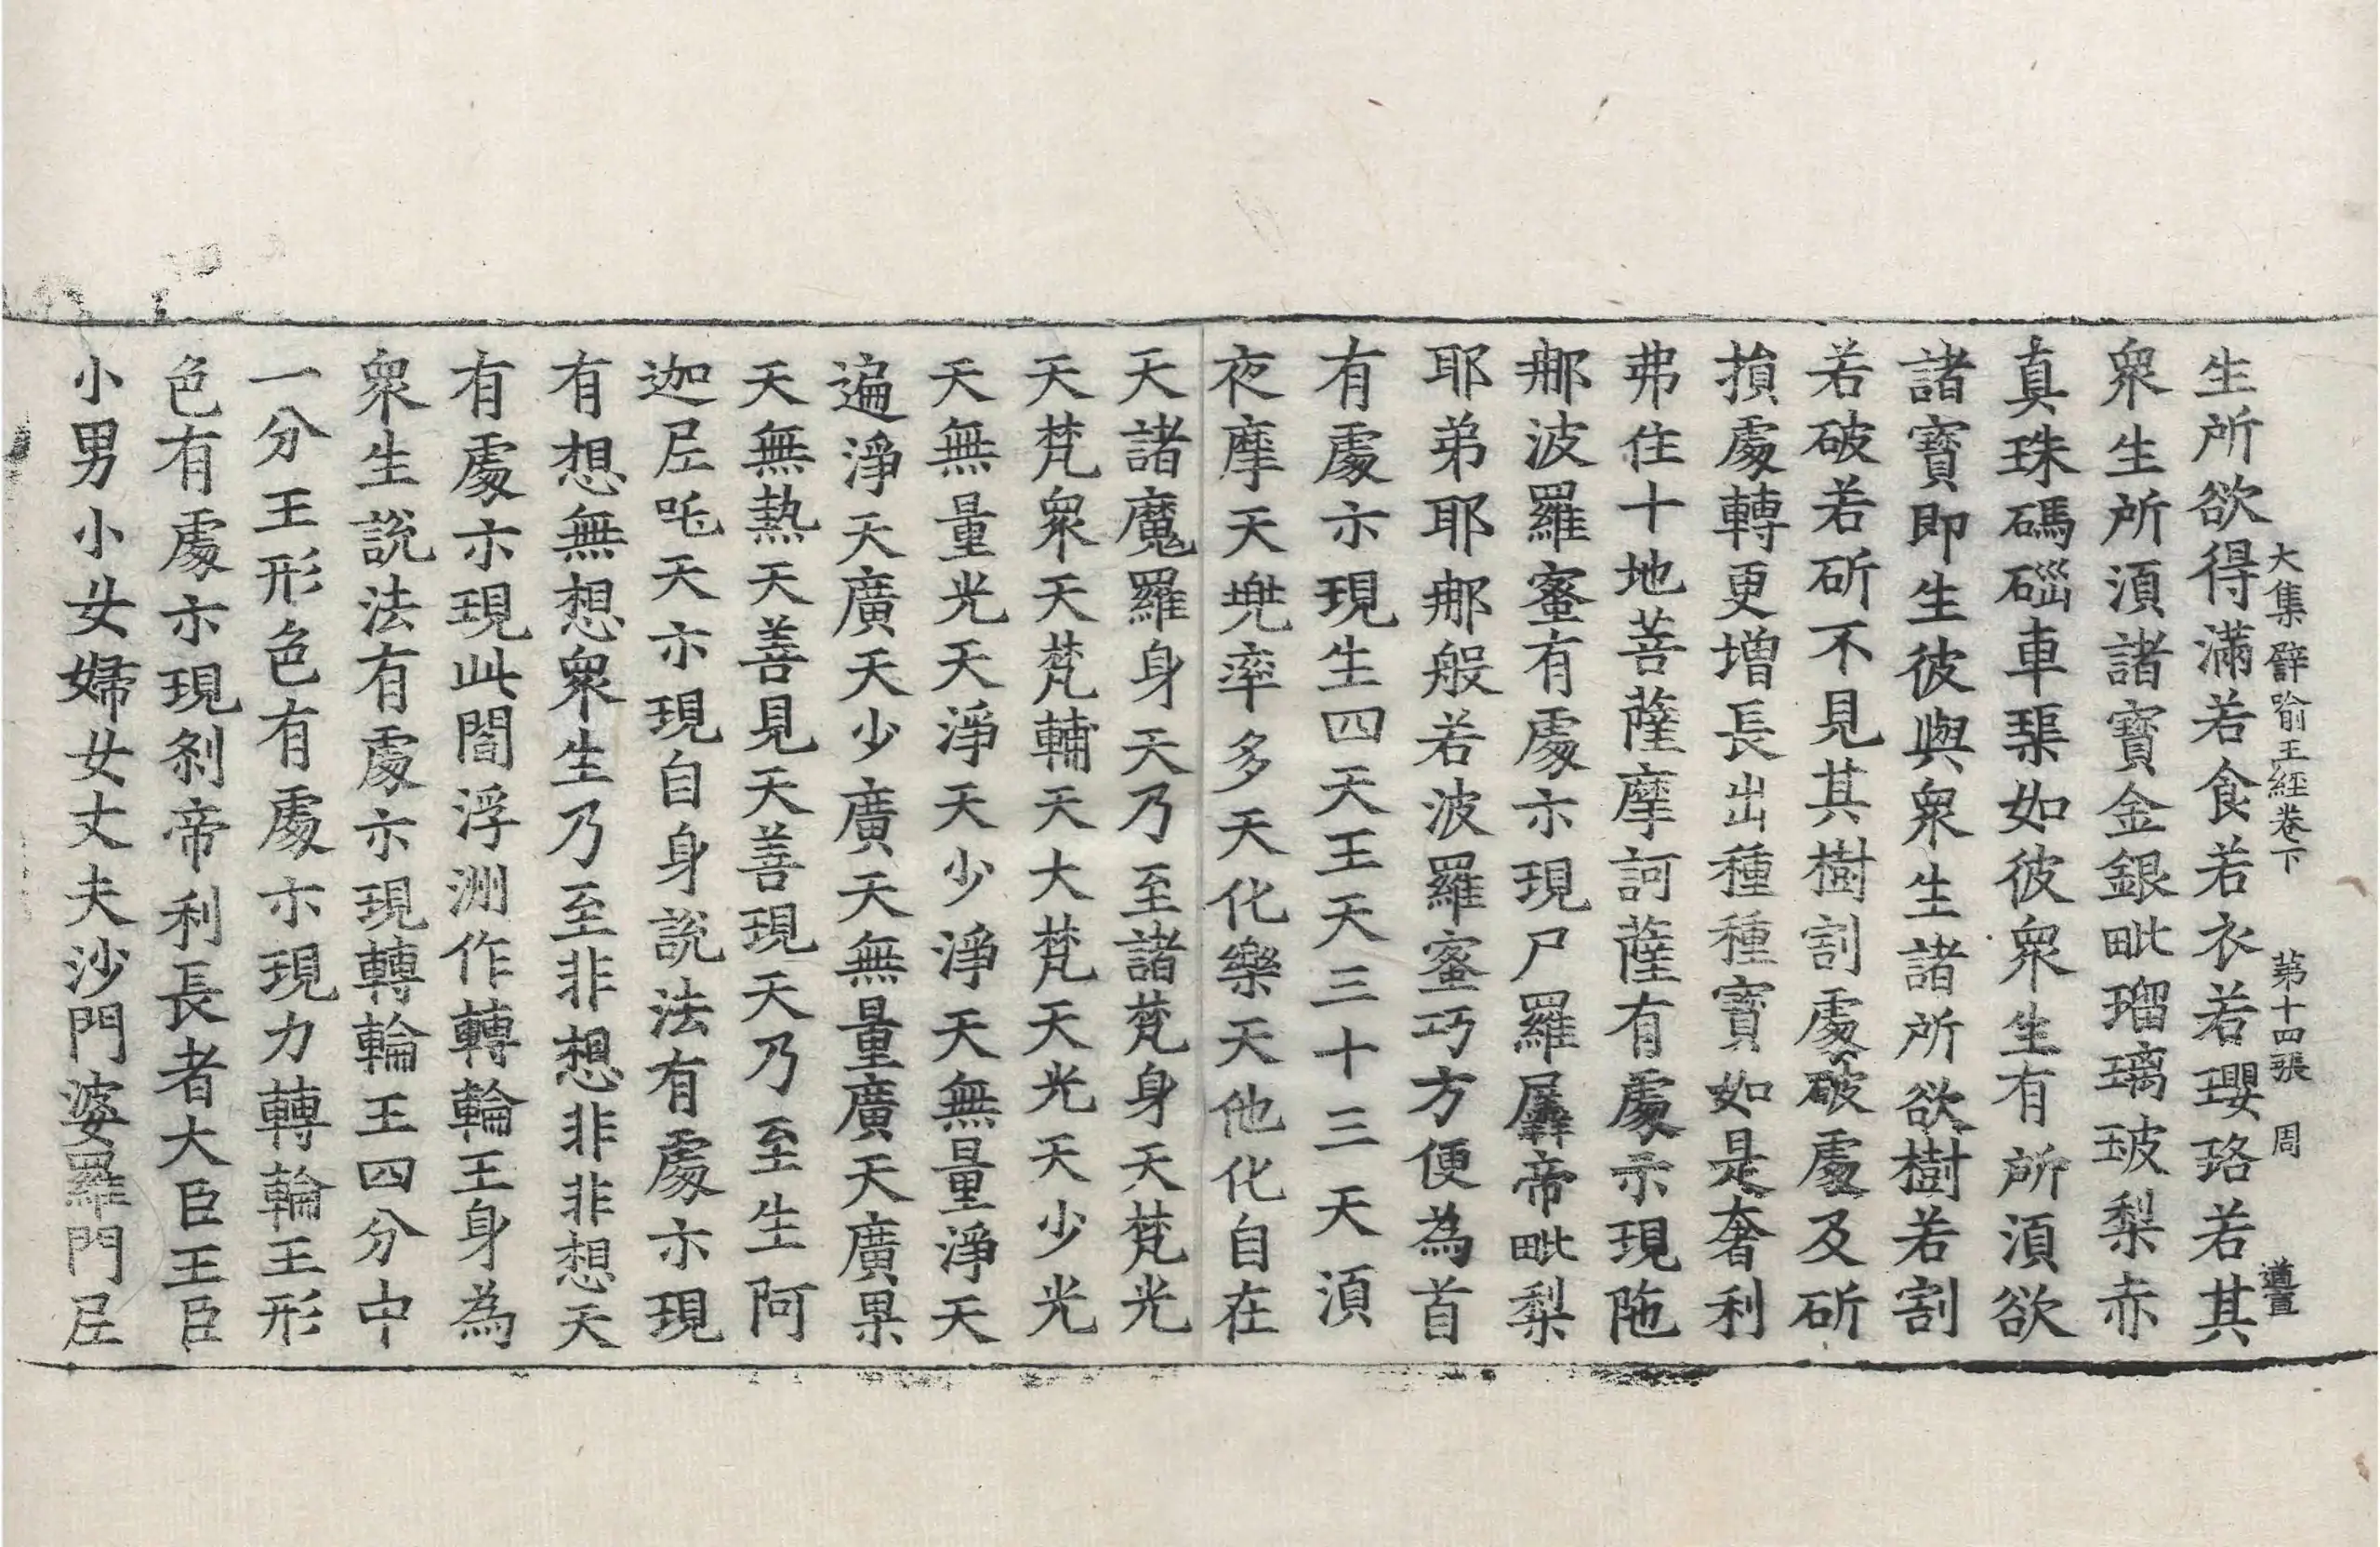 大集譬喻王經卷下　第十四張　周　道置
生所欲得滿若食若衣若瓔珞若其
衆生所湏諸寶金銀毗瑠璃玻梨赤
真珠碼碯車璖如彼衆生有所湏欲
諸寶即生彼與衆生諸所欲樹若割
若破若斫不見其樹割處破處及斫
損處轉更增長出種種寶如是奢利
弗住十地菩薩摩訶薩有處示現陁
那波羅蜜有處示現尸羅羼帝毗梨
耶弟耶那般若波羅蜜巧方便為首
有處示現生四天王天三十三天湏
夜摩天兜率多天化樂天他化自在
天諸魔羅身天乃至諸梵身天梵光
天梵衆天梵輔天大梵天光天少光
天無量光天淨天少淨天無量淨天
遍淨天廣天少廣天無量廣天廣果
天無熱天善見天善現天乃至生阿
迦尼吒天示現自身說法有處示現
有想無想衆生乃至非想非非想天
有處示現此閻浮洲作轉輪王身為
衆生說法有處示現轉輪王四分中
一分王形色有處示現力轉輪王形
色有處示現剎帝利長者大臣王臣
小男小女婦女丈夫沙門婆羅門尼